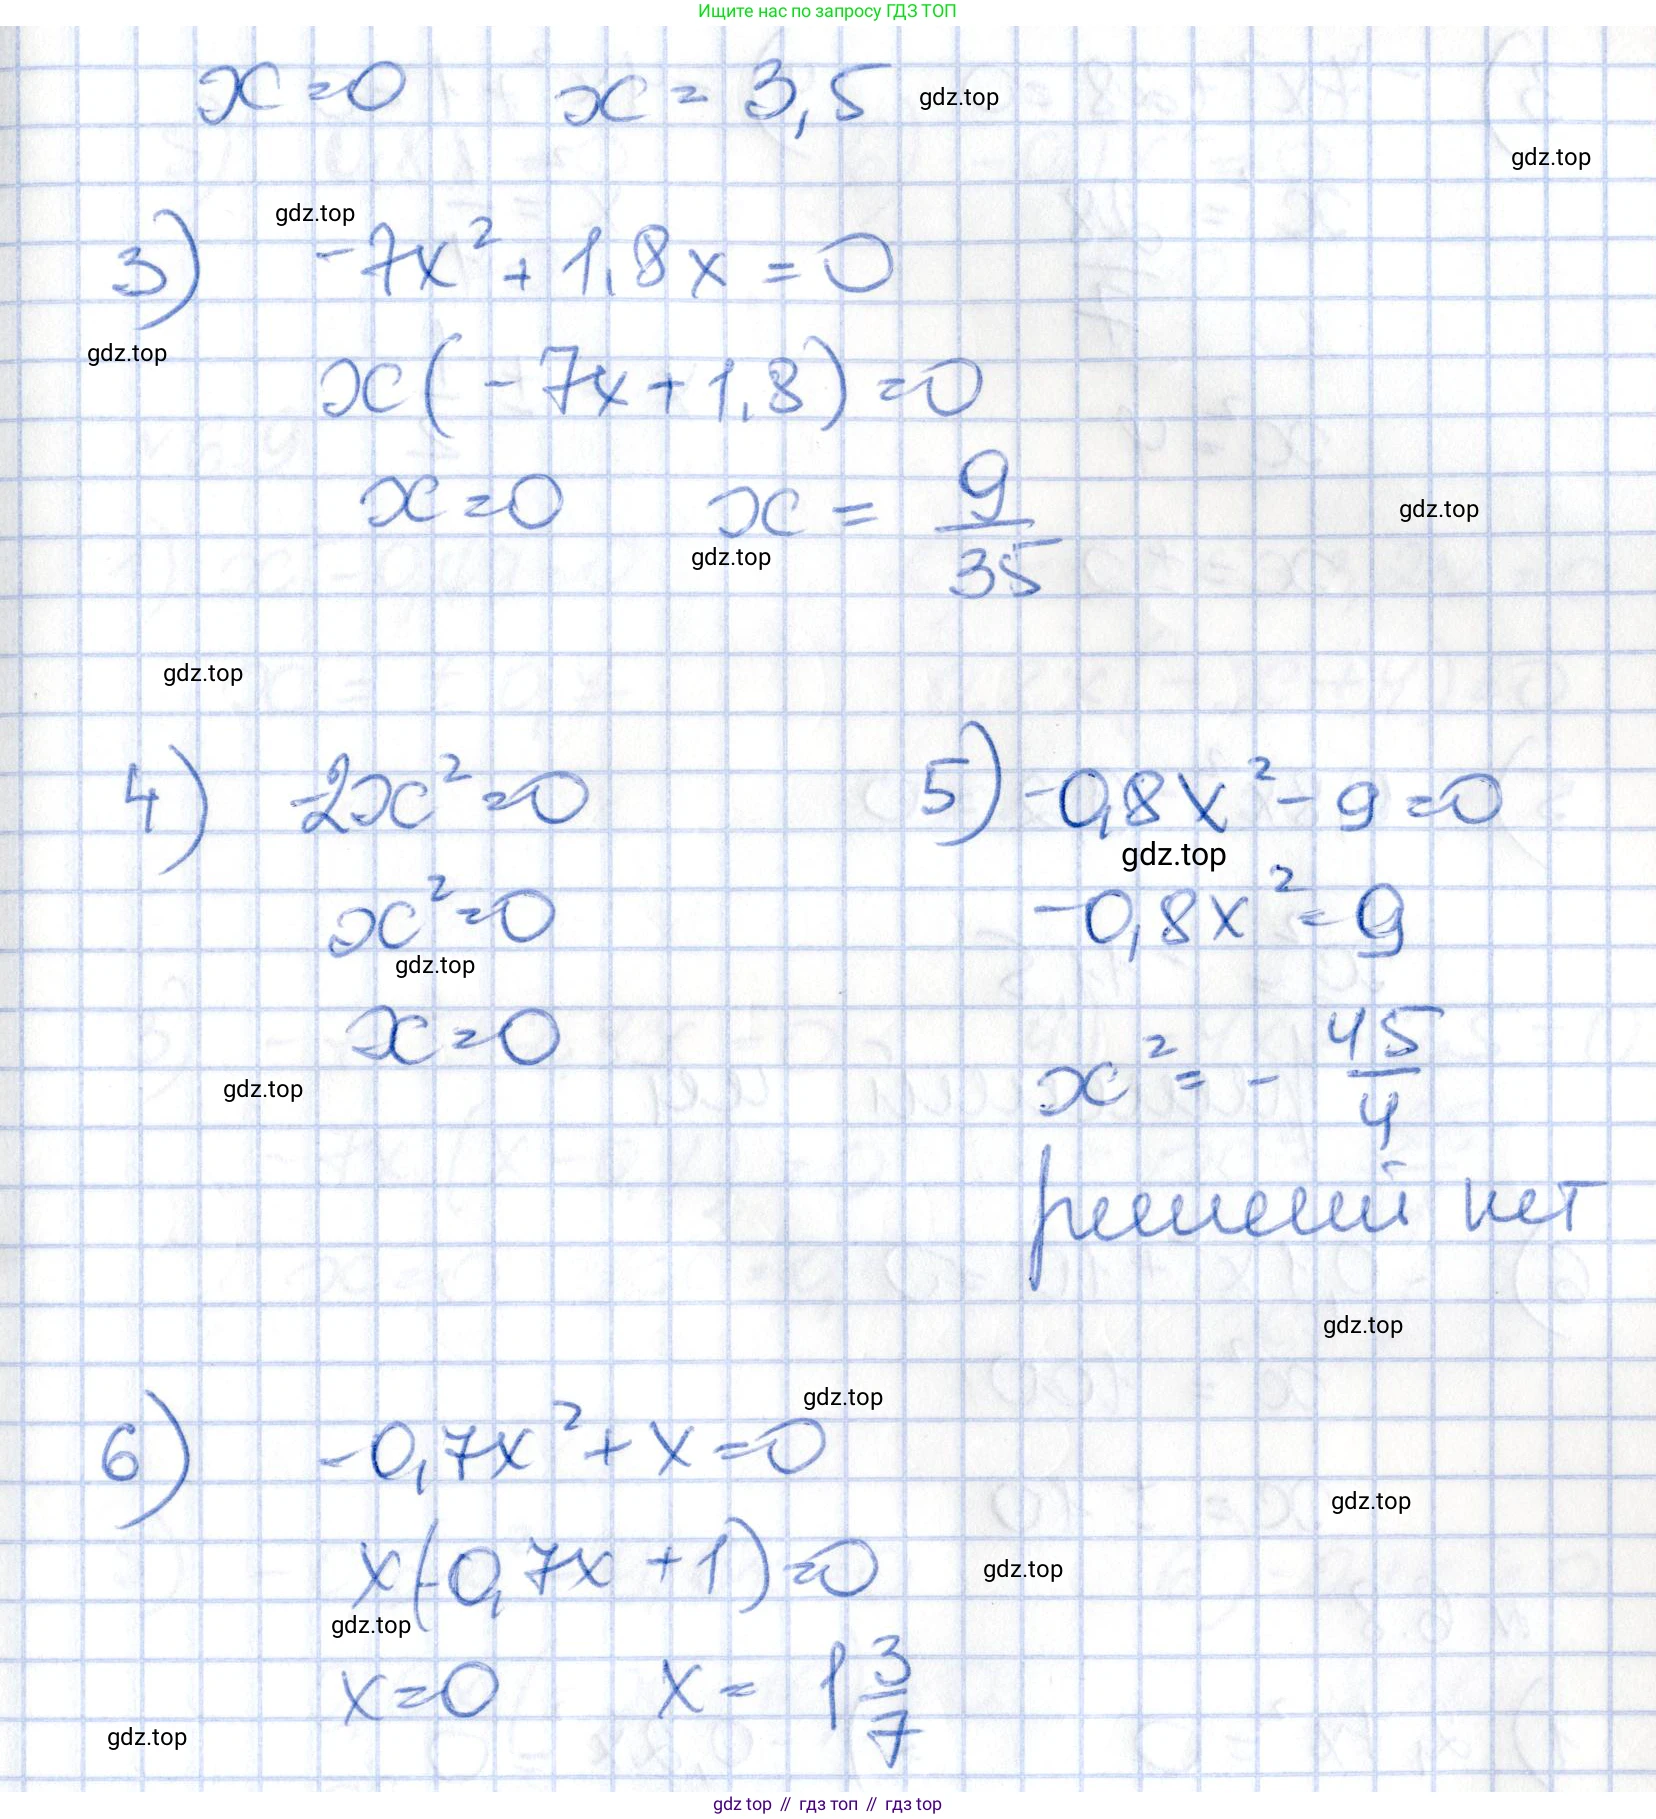 Ищите нас по запросу ГДЗ ТОП
x=0 x = 3,5
gdz.top
gdz.top
gdz.top
3) -7x² + 1,8x = 0
gdz.top
x(-7x+1,8)=0
x=0 x = 9/35
gdz.top
gdz.top
gdz.top
4) -2x²=0
x²=0
gdz.top
x=0
gdz.top
5) -0,8x²-9=0
gdz.top
-0,8x²=9
x² = - 45/4
решений нет
gdz.top
gdz.top
6) -0,7x²+x=0
gdz.top
x(-0,7x+1)=0
gdz.top
gdz.top
x=0 x= 1 3/7
gdz.top
gdz top // гдз топ // гдз top